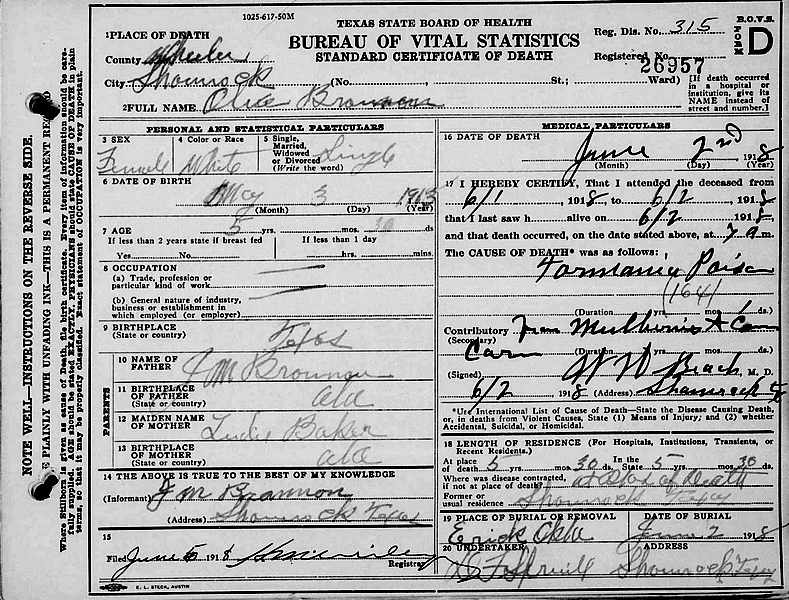 1025-617-50M
TEXAS STATE BOARD OF HEALTH
BUREAU OF VITAL STATISTICS
STANDARD CERTIFICATE OF DEATH
Reg. Dis. No. 315
Registered No. 26957
B.O.V.S.
FORM D
1 PLACE OF DEATH
County Wheeler
City Shamrock (No. , St.; Ward)
[If death occurred in a hospital or institution, give its NAME instead of street and number.]
2 FULL NAME
PERSONAL AND STATISTICAL PARTICULARS
3 SEX Female
4 Color or Race White
5 Single, Married, Widowed or Divorced (Write the word) Single
6 DATE OF BIRTH
May 3 1913
(Month) (Day) (Year)
7 AGE 5 yrs. mos. 30 ds
If less than 2 years state if breast fed
Yes No
If less than 1 day
hrs. mins.
8 OCCUPATION
(a) Trade, profession or particular kind of work
(b) General nature of industry, business or establishment in which employed (or employer)
9 BIRTHPLACE
(State or country) Texas
PARENTS
10 NAME OF FATHER J M Brannon
11 BIRTHPLACE OF FATHER
(State or country) Ala
12 MAIDEN NAME OF MOTHER Baker
13 BIRTHPLACE OF MOTHER
(State or country) Ala
14 THE ABOVE IS TRUE TO THE BEST OF MY KNOWLEDGE
(Informant) J M Brannon
(Address) Shamrock Texas
15
Filed June 5 1918
Registrar
E. L. STECK, AUSTIN
MEDICAL PARTICULARS
16 DATE OF DEATH
June 2nd 1918
(Month) (Day) (Year)
17 I HEREBY CERTIFY, That I attended the deceased from
6/1, 1918 to 6/2, 1918
that I last saw h alive on 6/2 1918,
and that death occurred, on the date stated above, at 7 a m.
The CAUSE OF DEATH* was as follows:
Poison
(164)
(Duration yrs. mos. ds.)
Contributory
(Secondary)
(Duration) yrs. mos. ds.
(Signed) W W Beach M. D.
6/2 1918 (Address) Shamrock Tx
*Use International List of Cause of Death—State the Disease Causing Death, or, in deaths from Violent Causes, State (1) Means of Injury; and (2) whether Accidental, Suicidal, or Homicidal.
18 LENGTH OF RESIDENCE (For Hospitals, Institutions, Transients, or Recent Residents.)
At place of death 5 yrs. mos. 30 ds. In the State 5 yrs. mos. 30 ds.
Where was disease contracted, if not at place of death? at Place of Death
Former or usual residence Shamrock Texas
19 PLACE OF BURIAL OR REMOVAL
Erick Okla
DATE OF BURIAL
June 2 1918
20 UNDERTAKER
ADDRESS
Shamrock Texas
NOTE WELL—INSTRUCTIONS ON THE REVERSE SIDE.
E PLAINLY WITH UNFADING INK—THIS IS A PERMANENT RE
Where Stillborn is given as cause of Death, file birth certificate. Every item of information should be care-
fully supplied. AGE should be stated EXACTLY. PHYSICIANS should state CAUSE OF DEATH in plain
terms, so that it may be properly classified. Exact statement of OCCUPATION is very important.